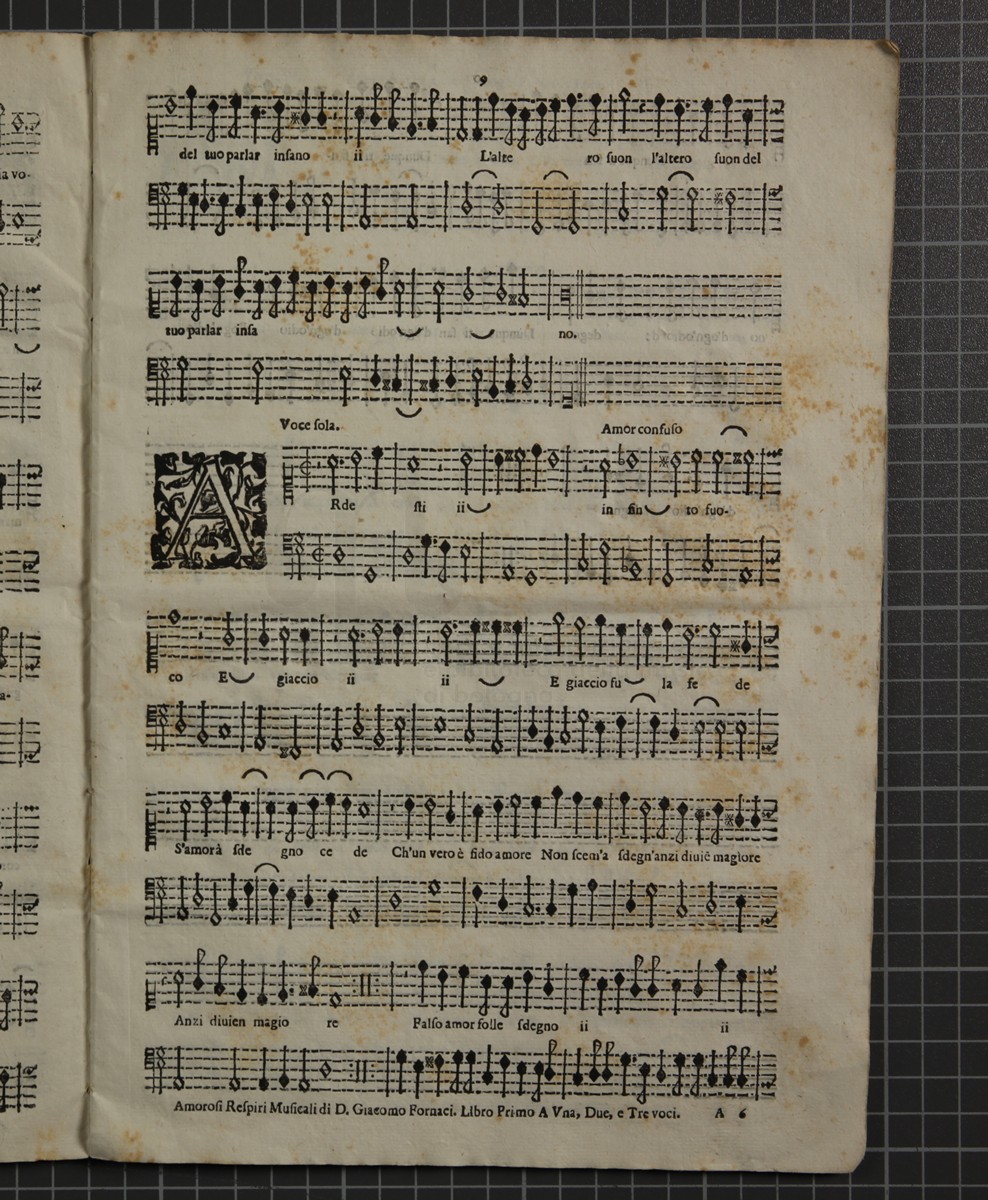 9
del tuo parlar insano ii L'alte ro suon l'altero suon del
tuo parlar insa no.
Voce sola. Amor confuso
A Rde sti ii in fin to fuo-
co E giaccio ii ii E giaccio fu la fe de
S'amorà sde gno ce de Ch'un vero è fido amore Non scem'a sdegn'anzi diuiē magiore
Anzi diuien magio re Falso amor folle sdegno ii ii
Amorosi Respiri Musicali di D. Giacomo Fornaci. Libro Primo A Vna, Due, e Tre voci. A 6